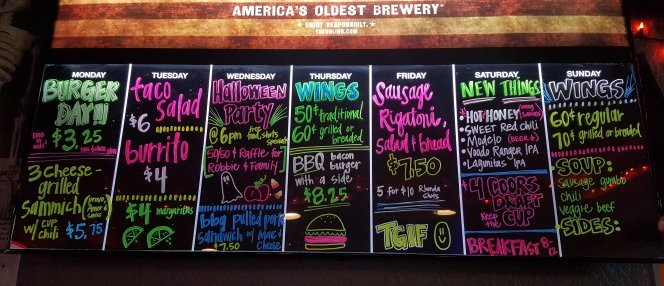 AMERICA'S OLDEST BREWERY®
ENJOY RESPONSIBLY.
YUENGLING.COM
MONDAY
BURGER
DAY!!!
$3.25
3 CHEESE
grilled
SAMMICH
w/ CUP
chili $5.75
TUESDAY
taco
salad
$6
burrito
$4
$4 margaritas
WEDNESDAY
Halloween
Party
@ 6pm free food, shots
specials
50/50 & Raffle for
Robbie & Family
bbq pulled pork
sandwich w/ Mac &
Cheese
$7.50
THURSDAY
WINGS
50¢ traditional
60¢ grilled or breaded
BBQ bacon
burger
with a side
$8.25
FRIDAY
Sausage,
Rigatoni,
Salad & bread
$7.50
5 for $10 Rhonda
Shots
TGIF
SATURDAY
NEW THINGS
HOT HONEY
SWEET Red chili
Modelo
Voodo Ranger IPA
Lagunitas IPA
4 COORS
DRAFT
Keep the CUP
BREAKFAST 8-12
SUNDAY
WINGS
60¢ regular
70¢ grilled or breaded
SOUP:
Sausage gumbo
chili
veggie beef
SIDES: